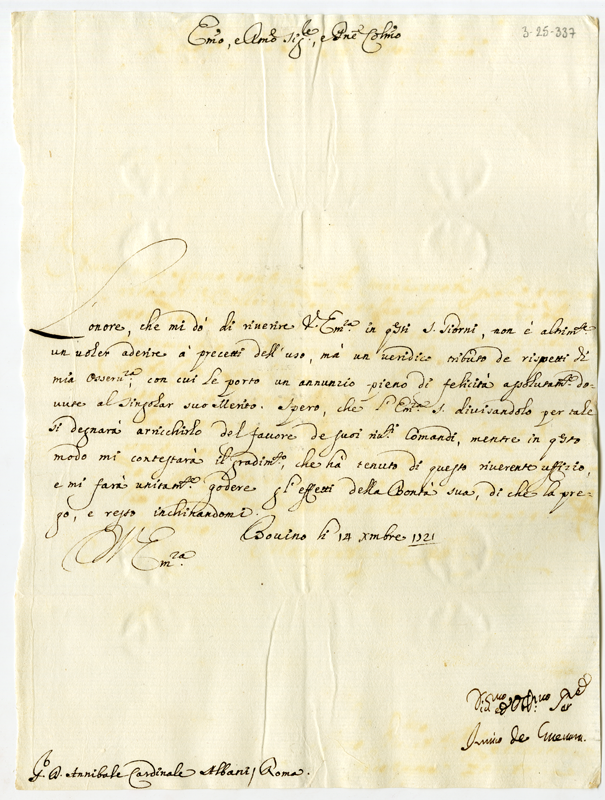 3-25-337
Emo, e Rmo Sigre, e Pne Colmo
Lonore, che mi dò di riverire V. Emza in qsti S. Giorni, non è altrimte
un voler aderire à precetti dell'uso, mà un veridico tributo de rispetti di
mia osservza, con cui le porto un annunzio pieno di felicità assolutamte do-
vute al singolar suo Merito. Spero, che l'Emza S. divisandolo per tale
si degnarà arricchirlo del favore de suoi rivti Comandi, mentre in qsto
modo mi contestarà il gradimto, che hà tenuto di questo riverente uffizio,
e mi farà unitamte godere gl'effetti della Bontà sua, di che la pre-
go, e resto inchinandomi.
Bovino li 14 Xmbre 1721
V Emza
Innico de Guevara
D. Annibale Cardinale Albani / Roma.